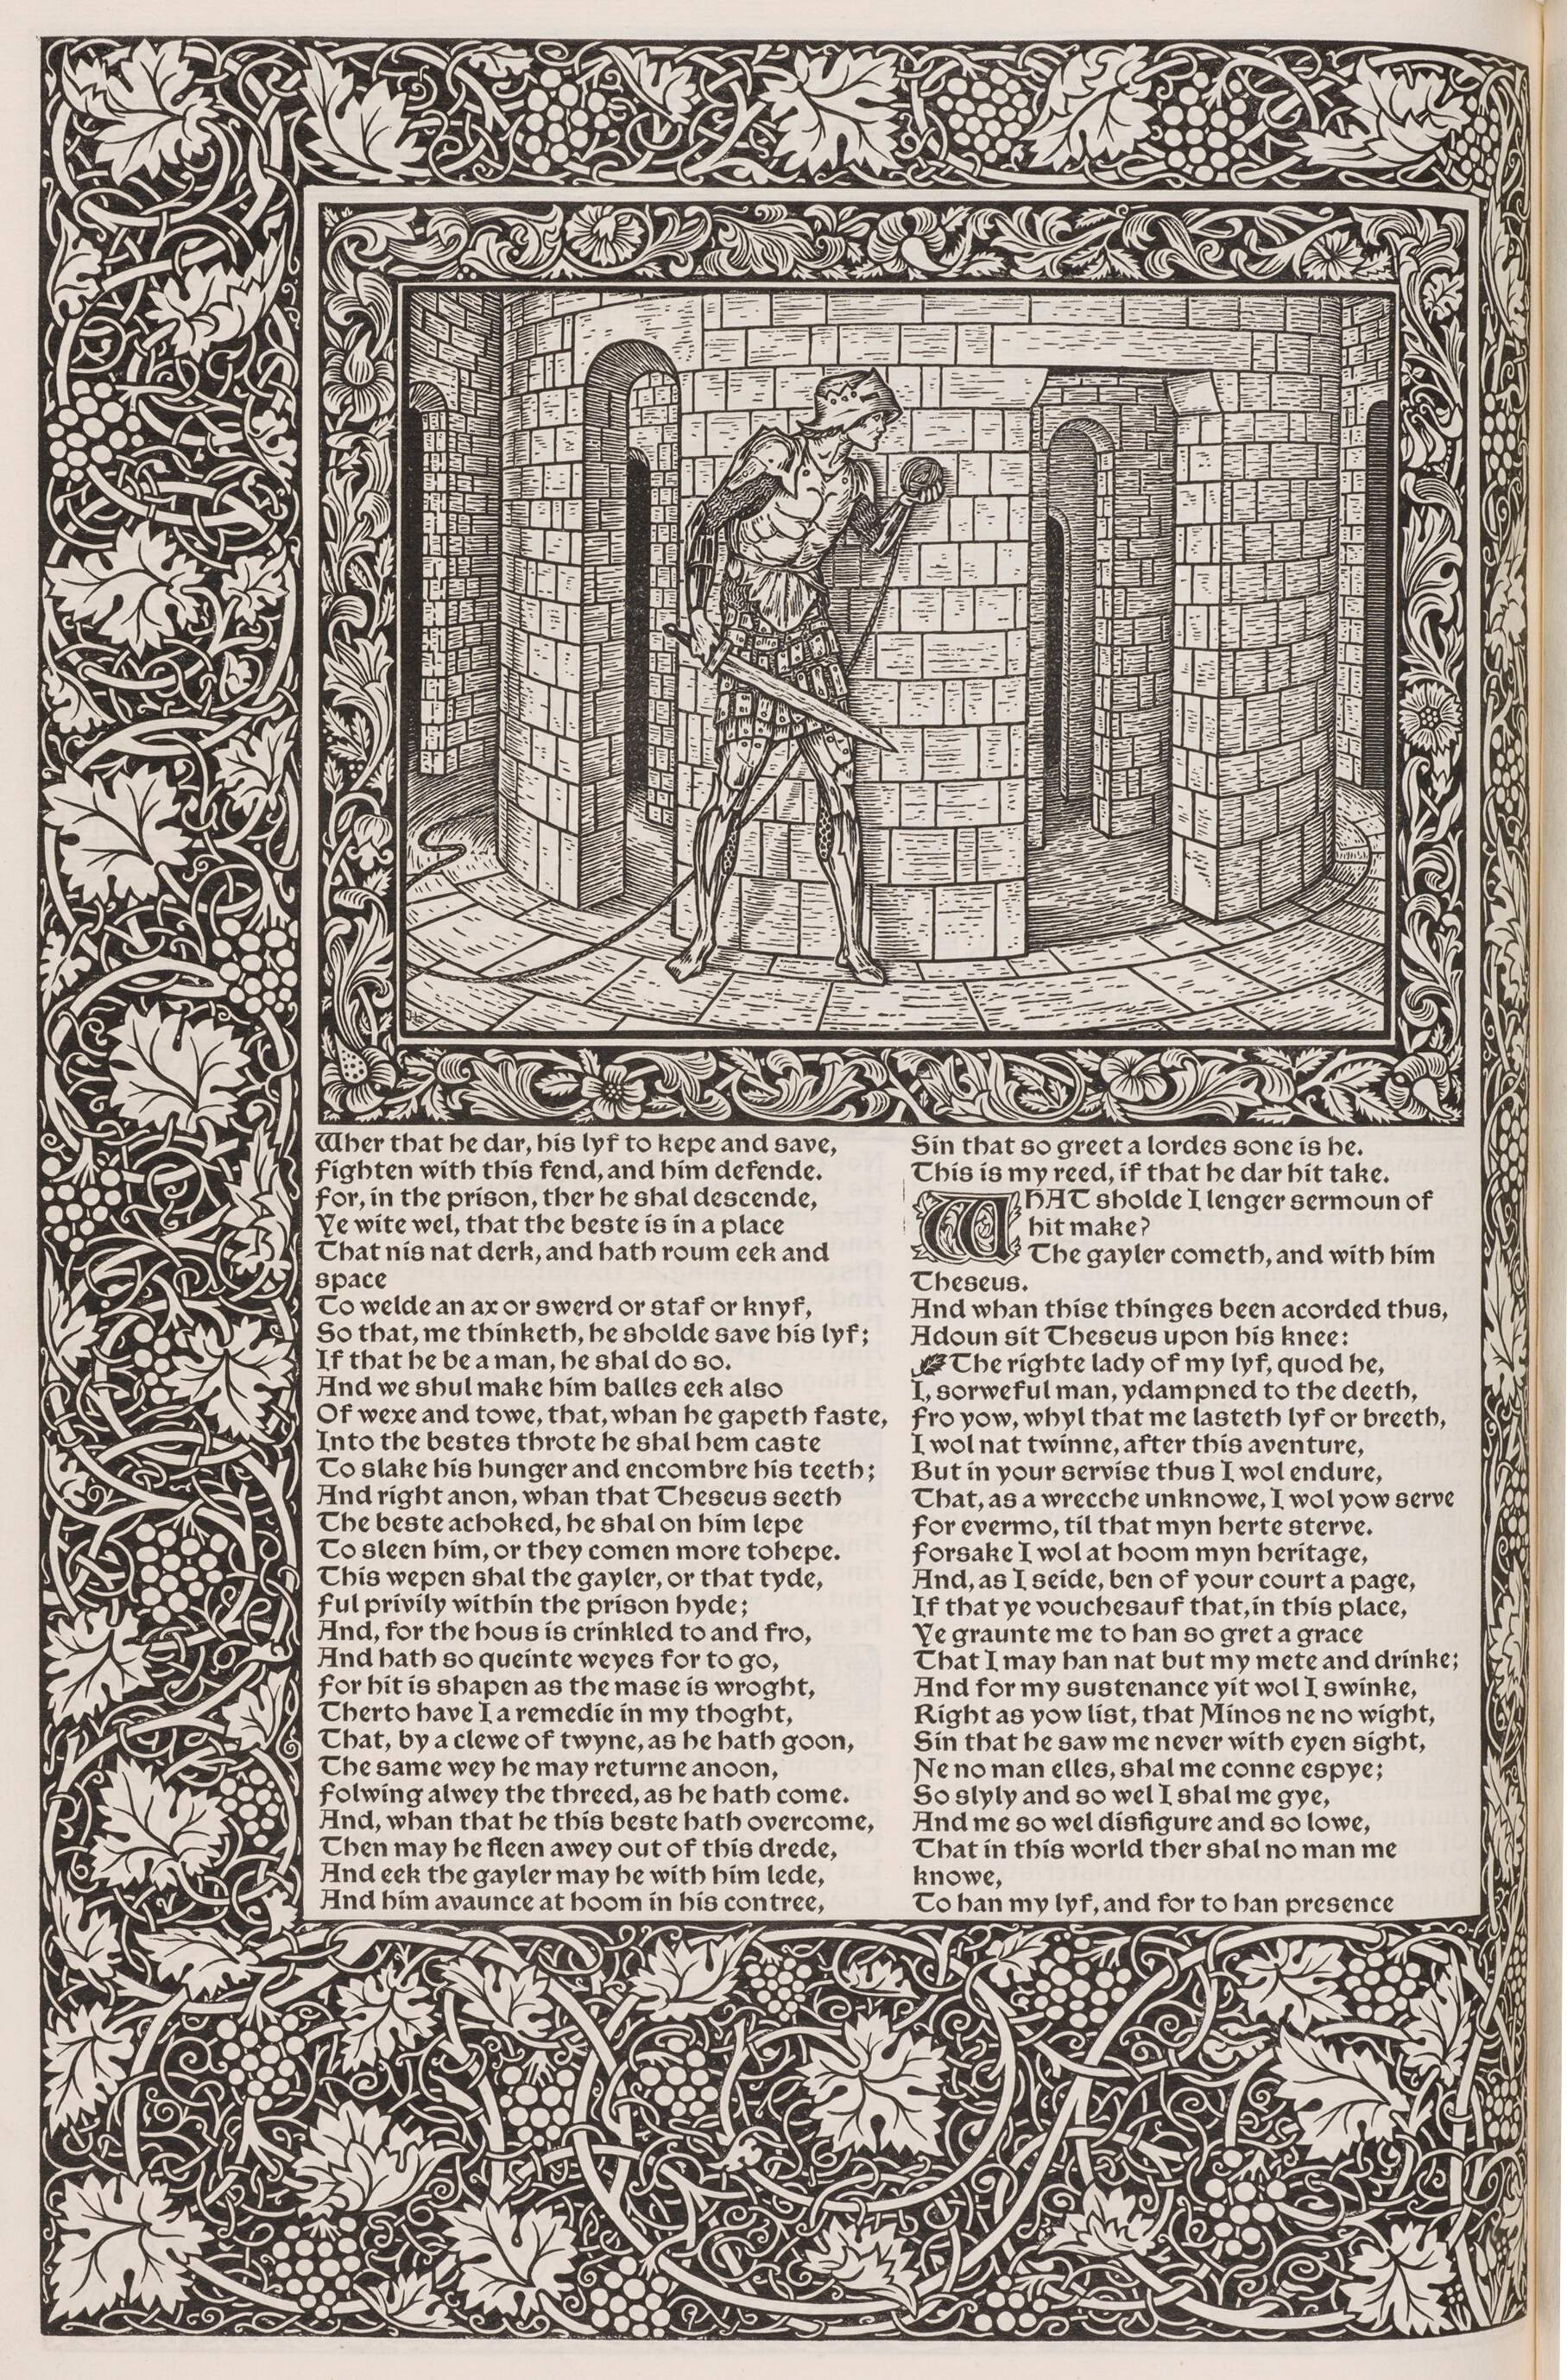 Wher that he dar, his lyf to kepe and save,
Fighten with this fend, and him defende.
For, in the prison, ther he shal descende,
Ye wite wel, that the beste is in a place
That nis nat derk, and hath roum eek and
space
To welde an ax or swerd or staf or knyf,
So that, me thinketh, he sholde save his lyf;
If that he be a man, he shal do so.
And we shul make him balles eek also
Of wexe and towe, that, whan he gapeth faste,
Into the bestes throte he shal hem caste
To slake his hunger and encombre his teeth;
And right anon, whan that Theseus seeth
The beste achoked, he shal on him lepe
To sleen him, or they comen more tohepe.
This wepen shal the gayler, or that tyde,
Ful privily within the prison hyde;
And, for the hous is crinkled to and fro,
And hath so queinte weyes for to go,
For hit is shapen as the mase is wroght,
Therto have I a remedie in my thoght,
That, by a clewe of twyne, as he hath goon,
The same wey he may returne anoon,
Folwing alwey the threed, as he hath come.
And, whan that he this beste hath overcome,
Then may he fleen awey out of this drede,
And eek the gayler may he with him lede,
And him avaunce at hoom in his contree,
Sin that so greet a lordes sone is he.
This is my reed, if that he dar hit take.
WHAT sholde I lenger sermoun of
hit make?
The gayler cometh, and with him
Theseus.
And whan thise thinges been acorded thus,
Adoun sit Theseus upon his knee:
The righte lady of my lyf, quod he,
I, sorweful man, ydampned to the deeth,
Fro yow, whyl that me lasteth lyf or breeth,
I wol nat twinne, after this aventure,
But in your servise thus I wol endure,
That, as a wrecche unknowe, I wol yow serve
For evermo, til that myn herte sterve.
Forsake I wol at hoom myn heritage,
And, as I seide, ben of your court a page,
If that ye vouchesauf that, in this place,
Ye graunte me to han so gret a grace
That I may han nat but my mete and drinke;
And for my sustenance yit wol I swinke,
Right as yow list, that Minos ne no wight,
Sin that he saw me never with eyen sight,
Ne no man elles, shal me conne espye;
So slyly and so wel I shal me gye,
And me so wel disfigure and so lowe,
That in this world ther shal no man me
knowe,
To han my lyf, and for to han presence